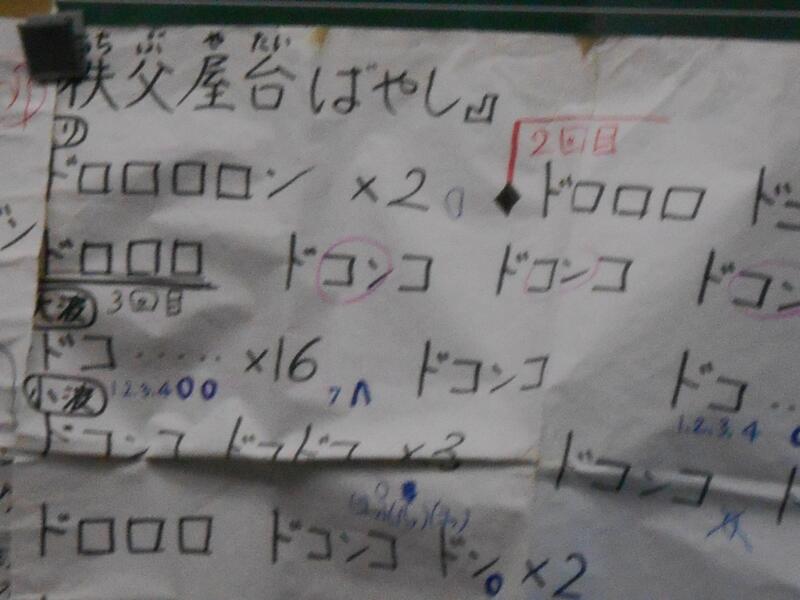 ちちぶやたい
秩父屋台ばやし』
2回目
ドロロロロン ×2 ◆ドロロロ
ドロロロ ドコンコ ドコンコ ドコン
大波 3回目
ドコ‥‥‥ ×16 ドコンコ ドコ‥
小波 1.2.3.4 1.2.3.4
ドコンコ ドコドコ ×3 ドコンコ
ドロロロ ドコンコ ドン ×2